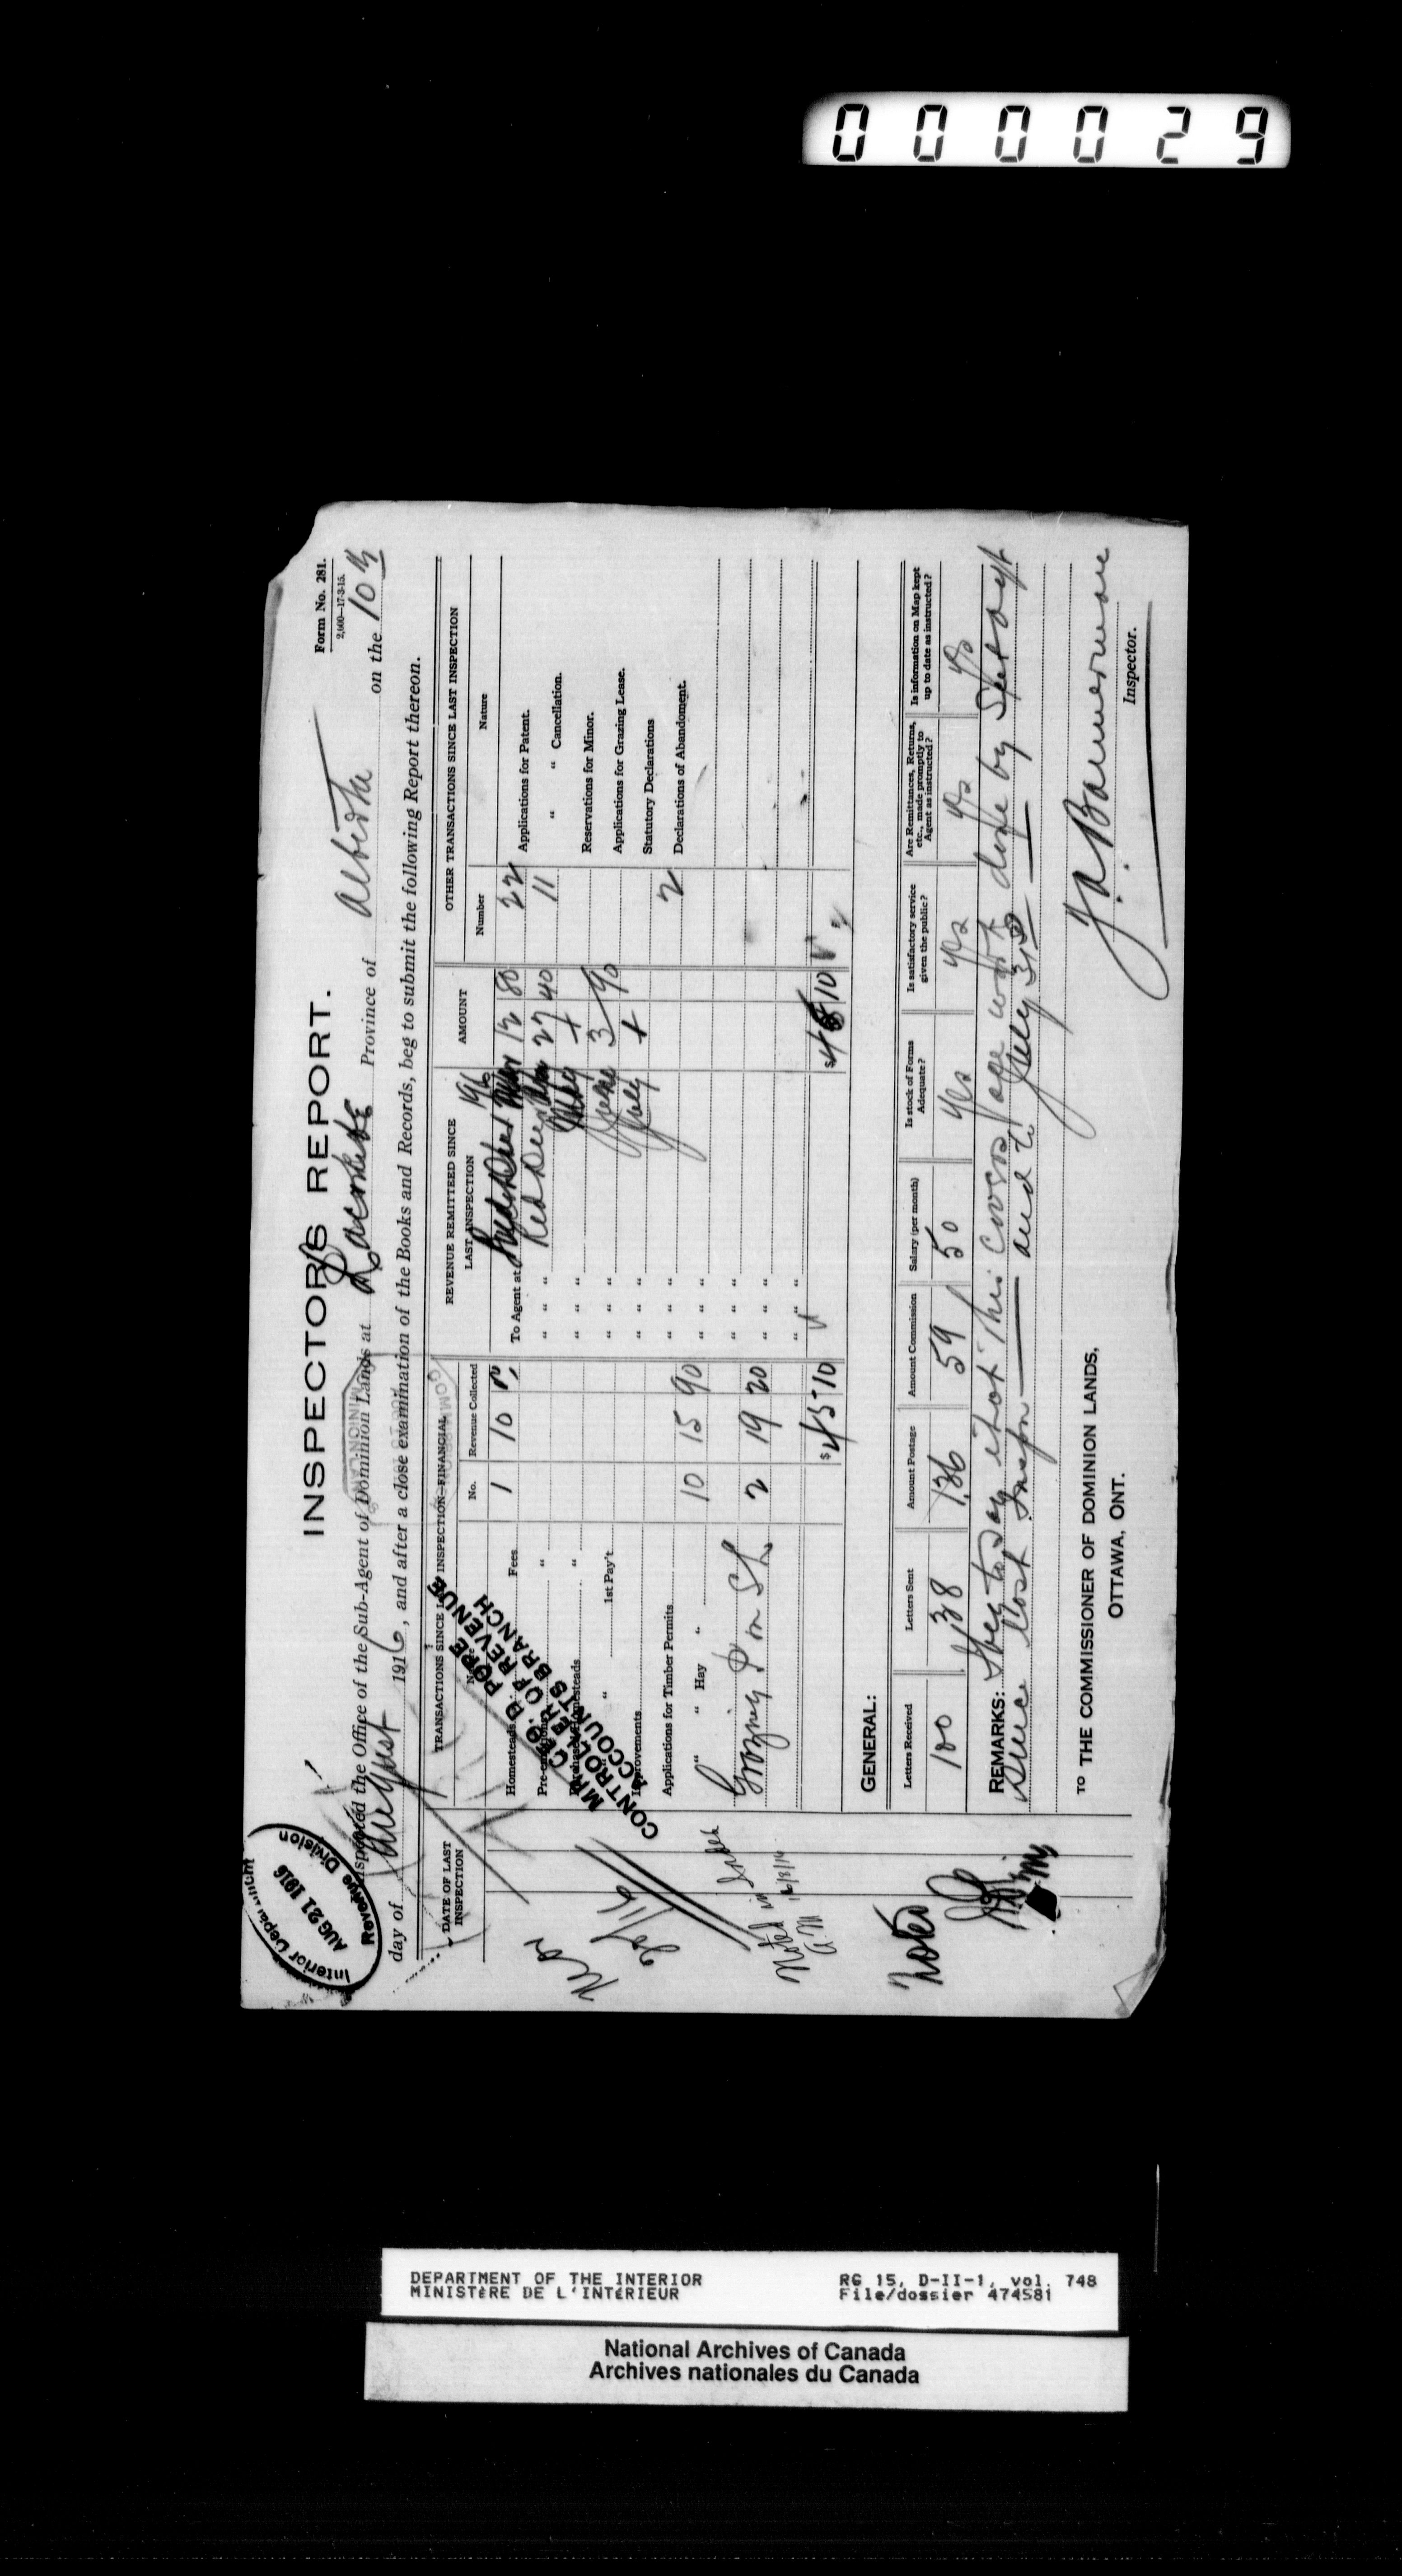 000029
Form No. 281.
2,000—17-3-15.
INSPECTOR'S REPORT.
Inspected the Office of the Sub-Agent of Dominion Lands at Lacombe Province of Alberta on the 10th
day of August 1916, and after a close examination of the Books and Records, beg to submit the following Report thereon.
Interior Department
AUG 21 1916
Revenue Division
DATE OF LAST INSPECTION
TRANSACTIONS SINCE LAST INSPECTION—FINANCIAL
REVENUE REMITTEED SINCE LAST INSPECTION 1916
AMOUNT
OTHER TRANSACTIONS SINCE LAST INSPECTION
No. Revenue Collected
Number Nature
Homesteads Fees 1 10
To Agent at Red Deer Mar 12 80
22 Applications for Patent.
Pre-emptions "
" " " Red Deer 27 40
11 " " Cancellation.
Purchased Homesteads "
" " " May +
Reservations for Minor.
" " 1st Pay't
" " " June 3 90
Applications for Grazing Lease.
Improvements
" " " July +
Statutory Declarations
Applications for Timber Permits 10 15 90
2 Declarations of Abandoment.
" " Hay "
Grazing 2 19 20
$45 10
$ 10
MR. GEO. D. POPE
CONTROLLER OF REVENUE
ACCOUNTS BRANCH
Mar
/16
Noted in Index
16/8/16
Noted
GENERAL:
Letters Received
Letters Sent
Amount Postage
Amount Commission
Salary (per month)
Is stock of Forms Adequate?
Is satisfactory service given the public?
Are Remittances, Returns, etc., made promptly to Agent as instructed?
Is information on Map kept up to date as instructed?
100 138 1.36 59 50 yes yes yes yes
REMARKS: I beg to say that this covers all work done by Sub agt
since last Inspn and to July 31st
J. A. Bannerman
Inspector.
TO THE COMMISSIONER OF DOMINION LANDS,
OTTAWA, ONT.
DEPARTMENT OF THE INTERIOR
MINISTÈRE DE L'INTÉRIEUR
RG 15, D-II-1, vol. 748
File/dossier 474581
National Archives of Canada
Archives nationales du Canada